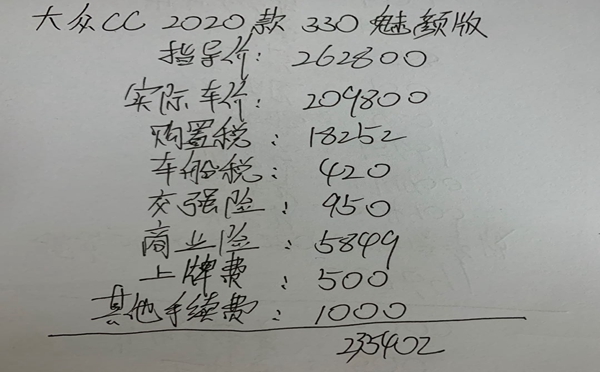 大众CC 2020款 330 魅颜版
指导价: 262800
实际车价: 209800
购置税: 18252
车船税: 420
交强险: 950
商业险: 5849
上牌费: 500
其他手续费: 1000
235402